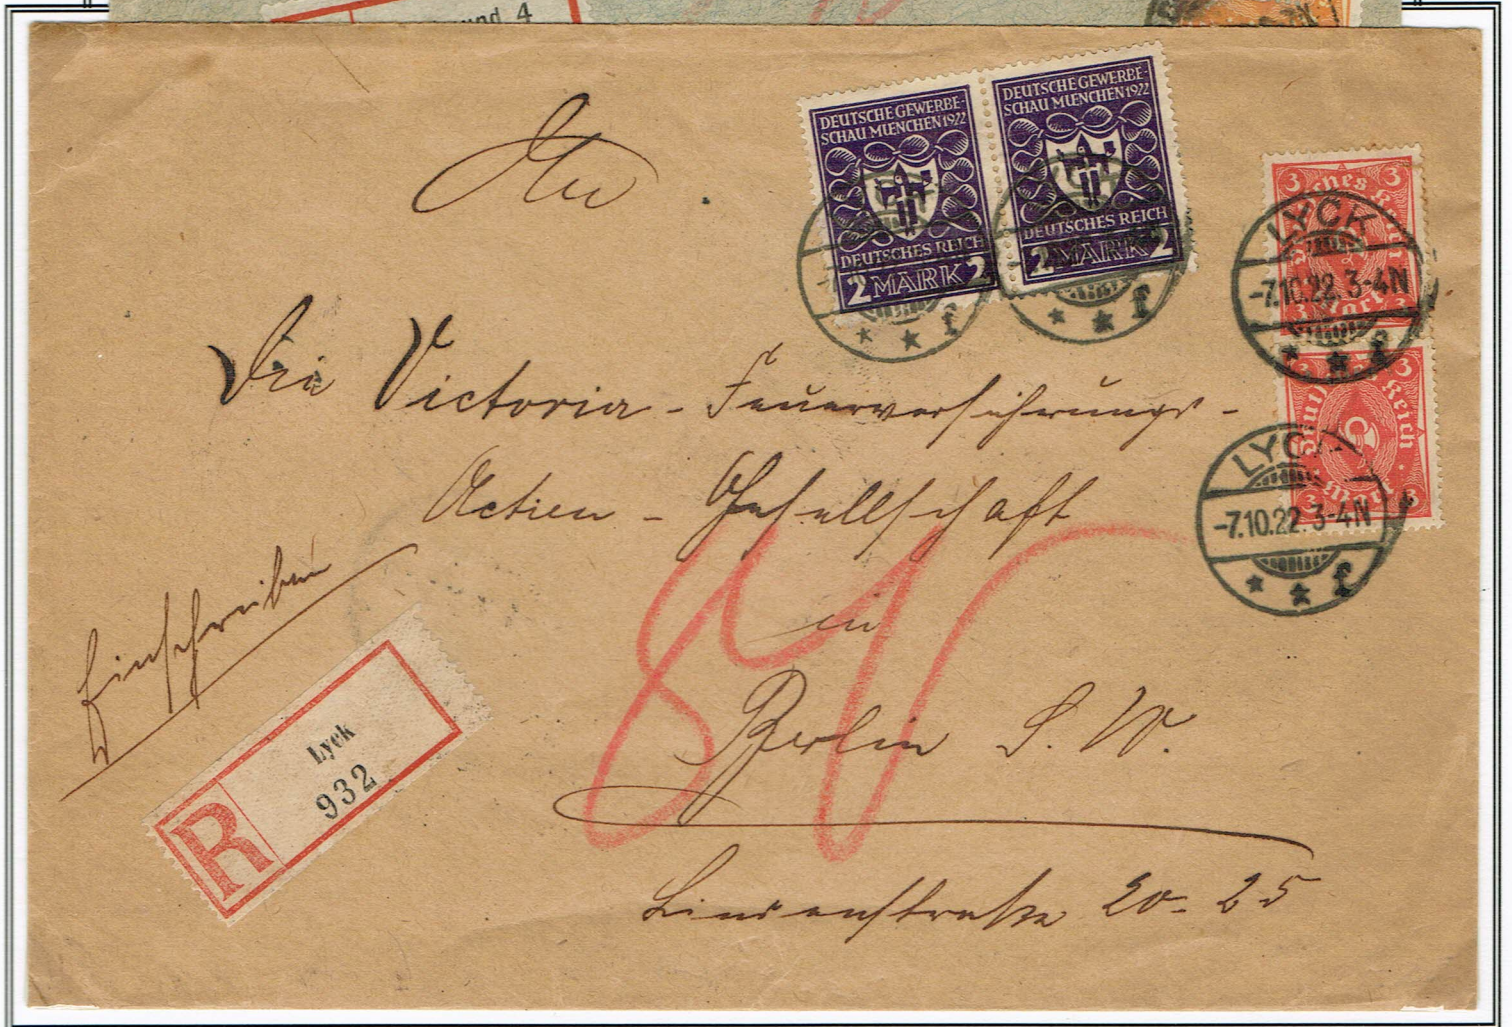 und 4
An
DEUTSCHE GEWERBE-
SCHAU MUENCHEN 1922
DEUTSCHES REICH
2 MARK 2
DEUTSCHE GEWERBE-
SCHAU MUENCHEN 1922
DEUTSCHES REICH
2 MARK 2
3 3
LYCK
-7.10.22. 3-4N
* * f
3 3
Reich
Mark
LYCK
-7.10.22. 3-4N
* * f
Die Victoria - Feuerversicherungs-
Actien - Gesellschaft
in
Berlin S. W.
Lindenstraße 20-25
Einschreiben
R
Lyck
932